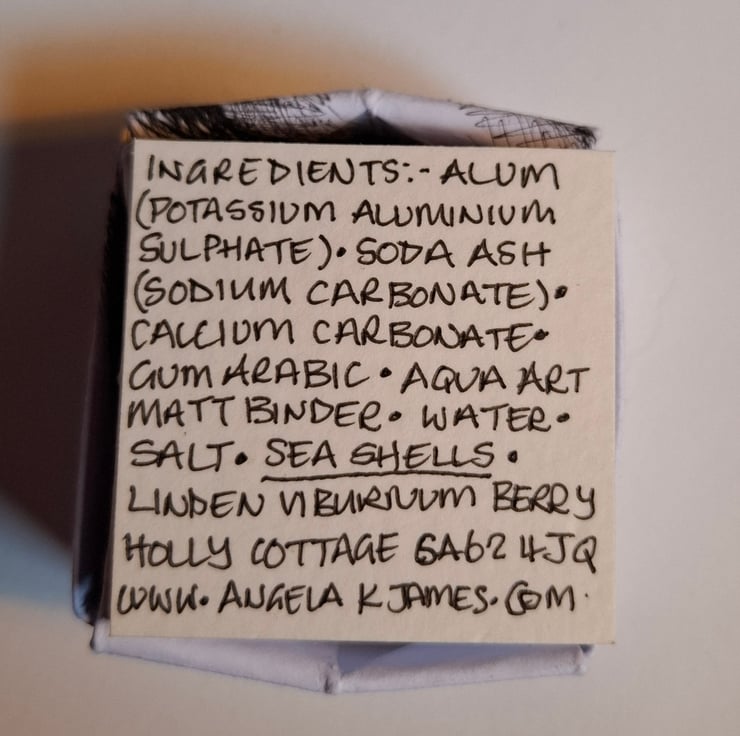 INGREDIENTS:- ALUM
(POTASSIUM ALUMINIUM
SULPHATE)• SODA ASH
(SODIUM CARBONATE)•
CALCIUM CARBONATE•
GUM ARABIC • AQUA ART
MATT BINDER• WATER•
SALT• SEA SHELLS •
LINDEN VIBURNUM BERRY
HOLLY COTTAGE SA62 4JQ
WWW. ANGELA K JAMES. COM